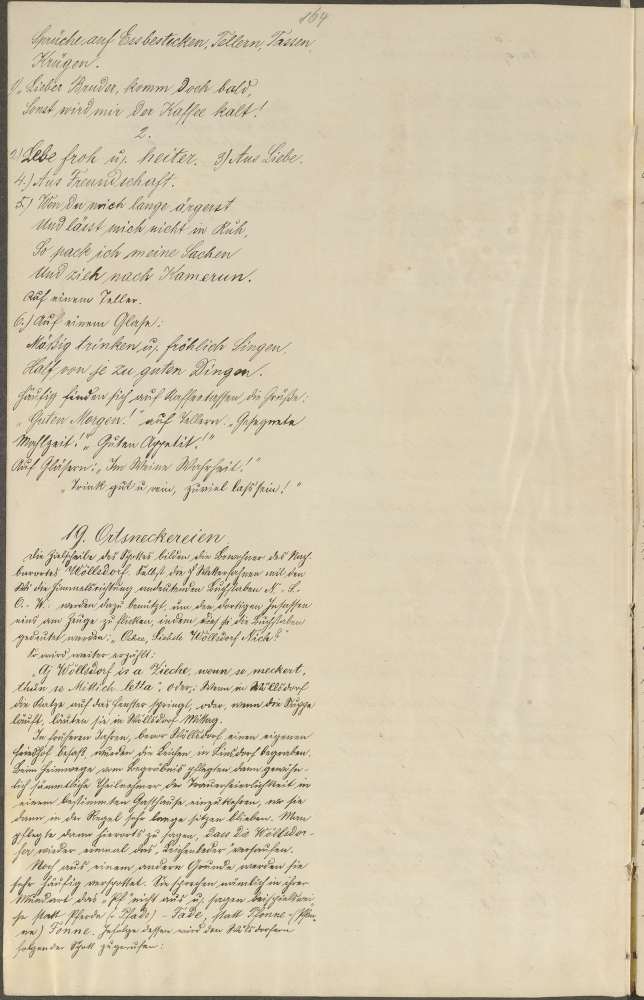 164
Sprüche auf Essbestecken, Tellern, Tassen,
Krügen.
1) „Lieber Bruder, komm doch bald,
Sonst wird mir der Kaffee kalt!
2.
2) Lebe froh u. heiter. 3) Aus Liebe.
4.) Aus Freundschaft.
5.) Wen du mich lange ärgerst
Und lässt mich nicht in Ruh,
So pack ich meine Sachen
Und zieh nach Kamerun.
Auf einem Teller.
6.) Auf einem Glase:
Mässig trinken, u. fröhlich singen.
Half von je zu guten Dingen.
Häufig finden sich auf Kaffeetassen die Grüße:
„Guten Morgen!" auf Tellern: „Gesegnete
Mahlzeit!" „Guten Appetit!"
Auf Gläsern: „Im Weine Wahrheit!"
„Trink gut u. rein, zuviel lass sein!"
19. Ortsneckereien.
Die Zielscheibe des Spottes bilden die Bewohner des Nach-
barortes Wöllsdorf. Selbst die Wetterfahnen mit den
die Himmelsrichtung andeutenden Buchstaben N. S.
O. W. werden dazu benützt, um den dortigen Insassen
eins am Zeuge zu flicken, indem die Buchstaben
gedeutet werden: Wöllsdorf Nich?"
Es wird weiter erzählt:
Wöllsdorf is a Zieche, wenn se meckert,
thun se Mittich letta", oder: Wenn in Wöllsdorf
die Katze auf das Fenster springt, oder, wenn die Suppe
läuft, läuten sie in Wöllsdorf Mittag.
In früheren Jahren, bevor Wöllsdorf einen eigenen
Friedhof besaß, wurden die Leichen in begraben.
Beim Heimwege vom Begräbnis pflegten dann gewöhn-
lich sämmtliche Theilnehmer der Trauerfeierlichkeit in
einem bestimmten Gasthause einzukehren, wo sie
dann in der Regel sehr lange sitzen blieben. Man
pflegte dann hierorts zu sagen, dass die Wöllsdor-
fer wieder einmal das „Leichenleder" versaufen.
Noch aus einem andern Grunde werden sie
sehr häufig verspottet. Sie sprechen nämlich in ihrer
Mundart das „Pf" nicht aus u. sagen beispielswei-
se statt Pferde (= Pfade) – Fade, statt Pfanne (= Pfon-
ne) Fonne. Infolge dessen wird den Wöllsdorfern
folgender Spott zugerufen: